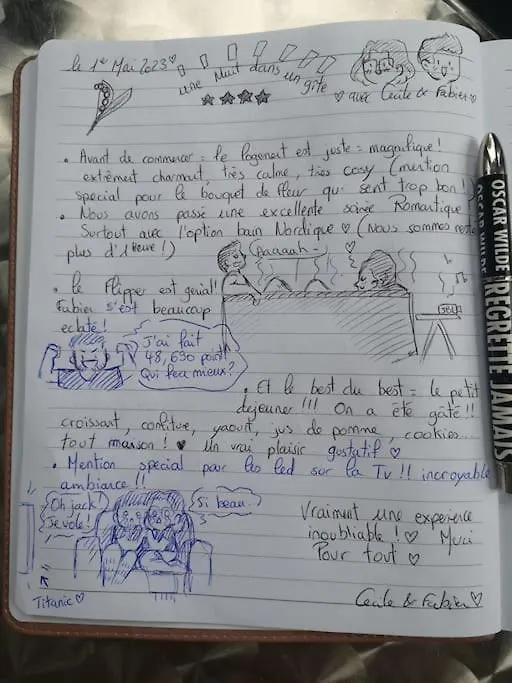 le 1er Mai 2023♡
une nuit dans un gîte
♡ avec Cécile & Fabien ♡
• Avant de commencer = le logement est juste = magnifique!
extrêment charmant, très calme, très cosy (mention
special pour le bouquet de fleur qui sent trop bon!)
• Nous avons passé une excellente soirée Romantique
Surtout avec l'option bain Nordique ♡ (Nous sommes resté
plus d'1 Heure!)
Aaaaah~
• le Flipper est génial!
Fabien s'est beaucoup
eclaté!
J'ai fait
48,690 point!
Qui fera mieux?
• Et le best du best = le petit
dejeuner!!! On a été gâté!!
croissant, confiture, yaourt, jus de pomme, cookies...
tout maison! ♥ Un vrai plaisir gustatif ♡
• Mention spécial pour les led sur la Tv!! incroyable
ambiance!!
Oh Jack!
Je vole!
Si beau.
Titanic♡
Vraiment une experience
inoubliable! ♡ Merci
Pour tout ♡
Cécile & Fabien♡
OSCAR WILDE
JE REGRETTE JAMAIS